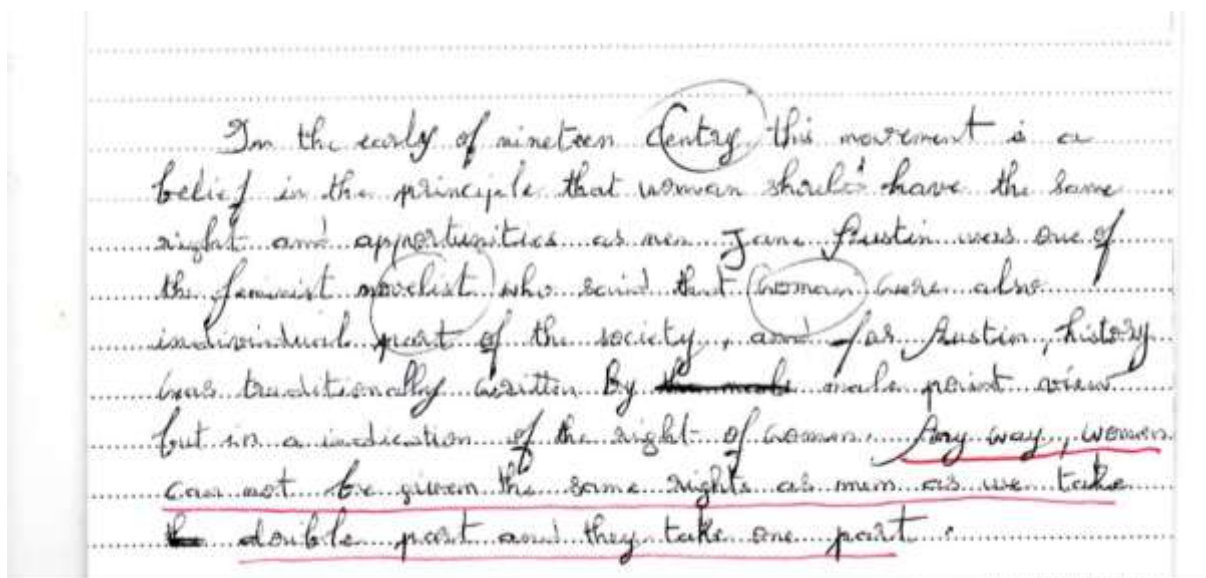 In the early of nineteen Centry this movement is a
belief in the principle that woman should have the same
right and apportunities as men Jane Austin was one of
the feminist novelist who said that woman were also
individual part of the society, and for Austin, history
was traditionally written By male point view
but in a indication of the right of women. Any way, women
can not be given the same rights as men as we take
double part and they take one part.